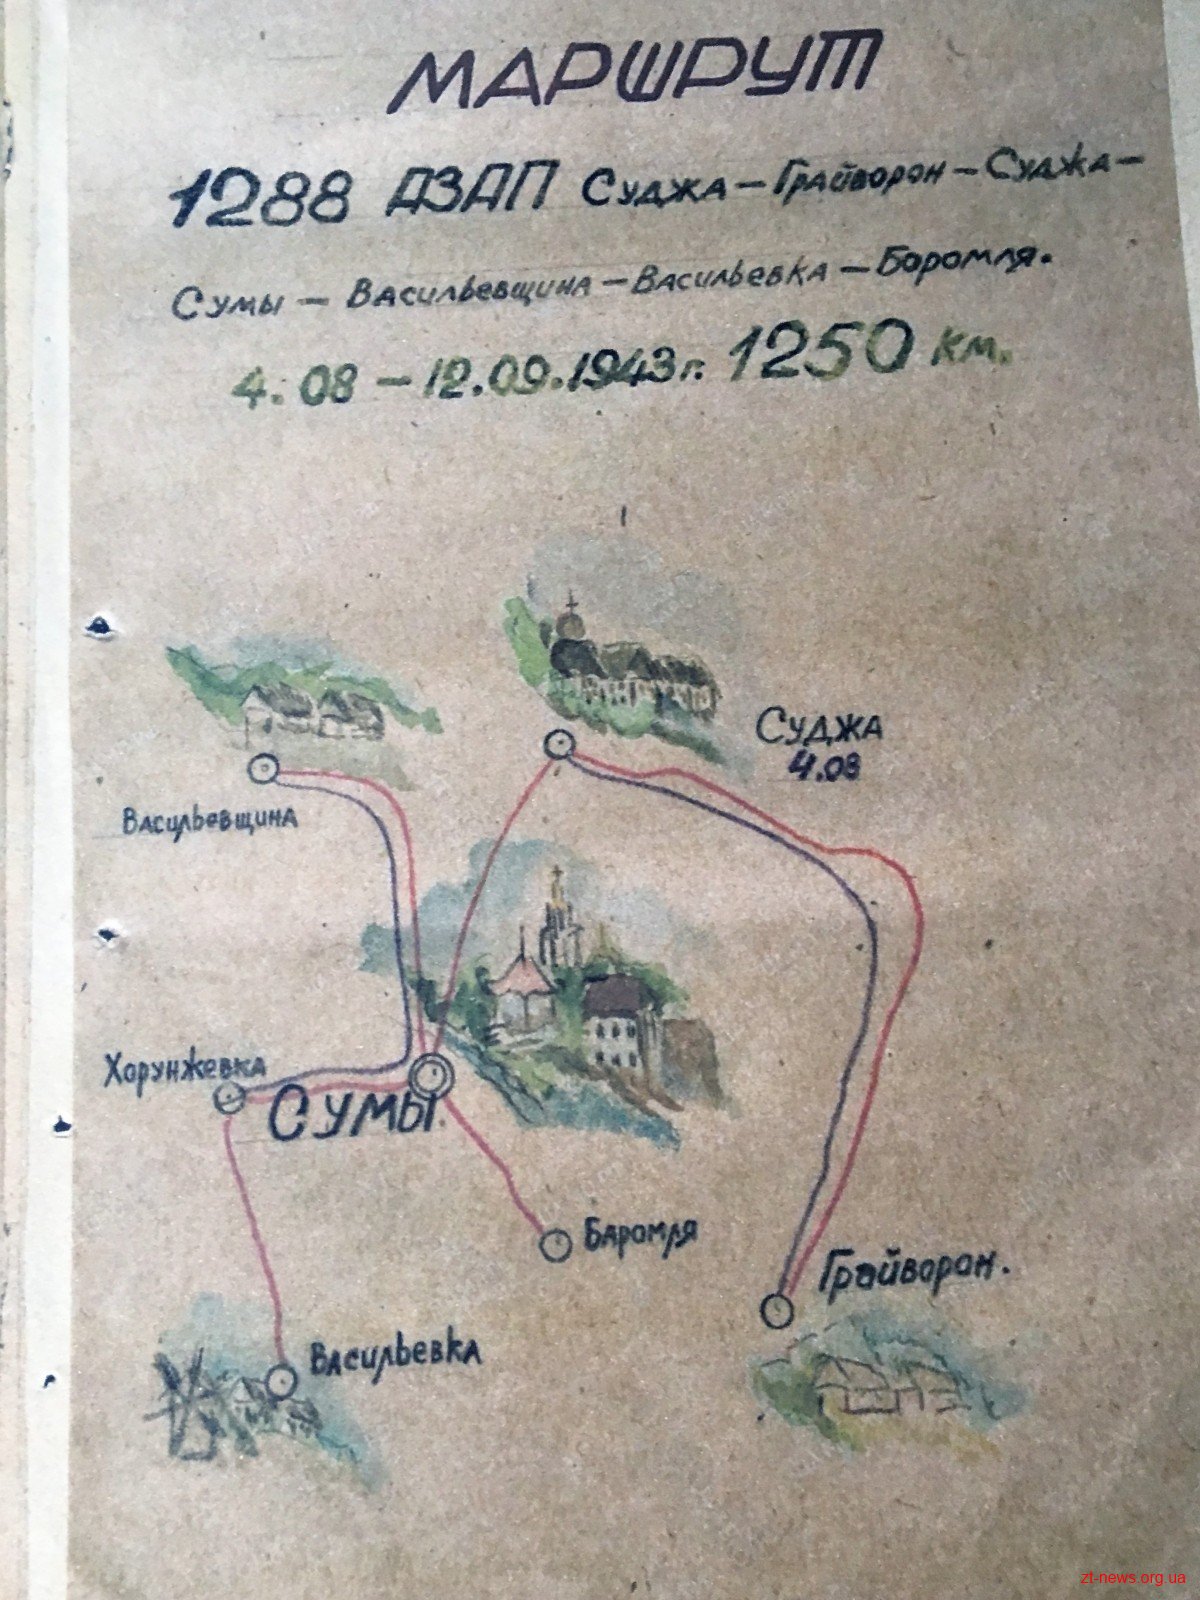 МАРШРУТ
1288 ДЗАП Суджа – Грайворон – Суджа –
Сумы – Васильевщина – Васильевка – Боромля.
4.08 – 12.09.1943 г. 1250 км.
Суджа
4.08
Васильевщина
Хорунжевка
Сумы
Баромля
Грайворон.
Васильевка
zt-news.org.ua